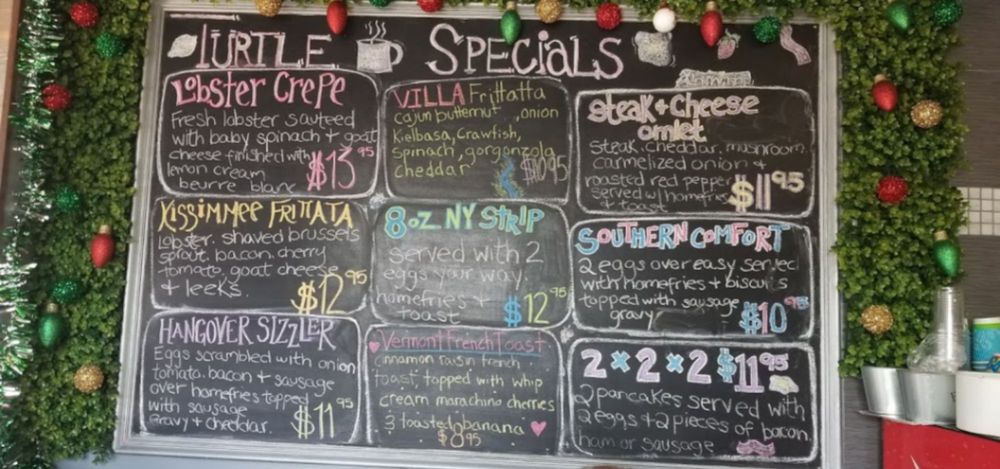 TURTLE SPECIALS
Lobster Crepe
Fresh lobster sauteed
with baby spinach + goat
cheese finished with
lemon cream
beurre blanc
$13 95
VILLA Frittatta
cajun butternut, onion
Kielbasa, crawfish,
spinach, gorgonzola
cheddar
$10 95
Steak + Cheese
omlet
steak, cheddar, mushroom
carmelized onion +
roasted red pepper
served w/ homefries
+ toast
$11 95
KISSIMMEE FRITTATA
Lobster, shaved brussels
sprout, bacon, cherry
tomato, goat cheese
+ leeks.
$12 95
8oz. NY STRIP
served with 2
eggs your way.
homefries +
toast
$12 95
SOUTHERN COMFORT
2 eggs over easy served
with homefries + biscuits
topped with sausage
gravy
$10 95
HANGOVER SIZZLER
Eggs scrambled with onion
tomato, bacon + sausage
over homefries topped
with sausage
gravy + cheddar.
$11 95
Vermont French Toast
cinnamon raisin french
toast, topped with whip
cream marachino cherries
& toasted banana
$8.95
2 x 2 x 2 $11 95
2 pancakes served with
2 eggs + 2 pieces of bacon,
ham or sausage